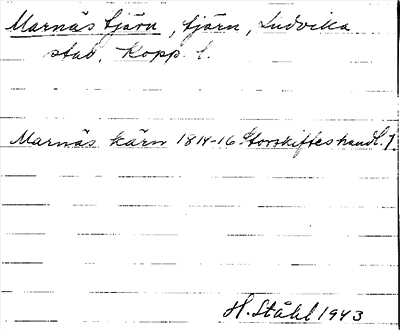 Marnäs tjärn, tjärn, Ludvika
stad, Kopp. l.
Marnäs kärn 1814-16 Storskifteshandl. 1
H. Ståhl 1943